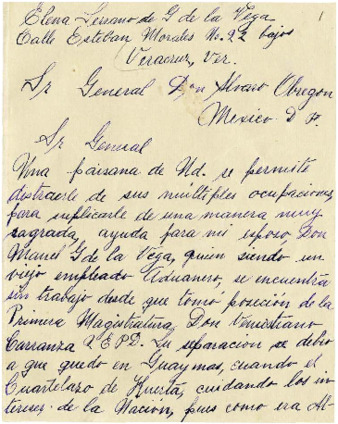 Elena Serrano de G de la Vega
1
Calle Esteban Morales No. 22 bajos
Veracruz, Ver.
Sr General Don Alvaro Obregon
Mexico D F.
Sr General
Una paisana de Ud. se permite
distraerle de sus múltiples ocupaciones,
para suplicarle de una manera muy
sagrada, ayuda para mi esposo, Don
Manuel G de la Vega, quien siendo un
viejo empleado Aduanero, se encuentra
sin trabajo desde que tomo posecion de la
Primera Magistratura, Don Venustiano
Carranza Q.E.P.D. Su separacion se debio
a que quedo en Guaymas, cuando el
Cuartelazo de Huerta, cuidando los in-
tereses de la Nación, pues como era Al-